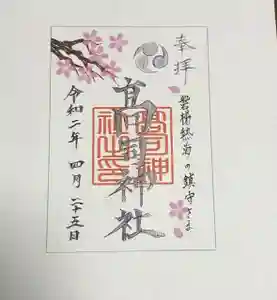 奉拝
磐梯熱海の鎮守さま
髙司神社
高司神
社之印
令和二年 四月二十五日